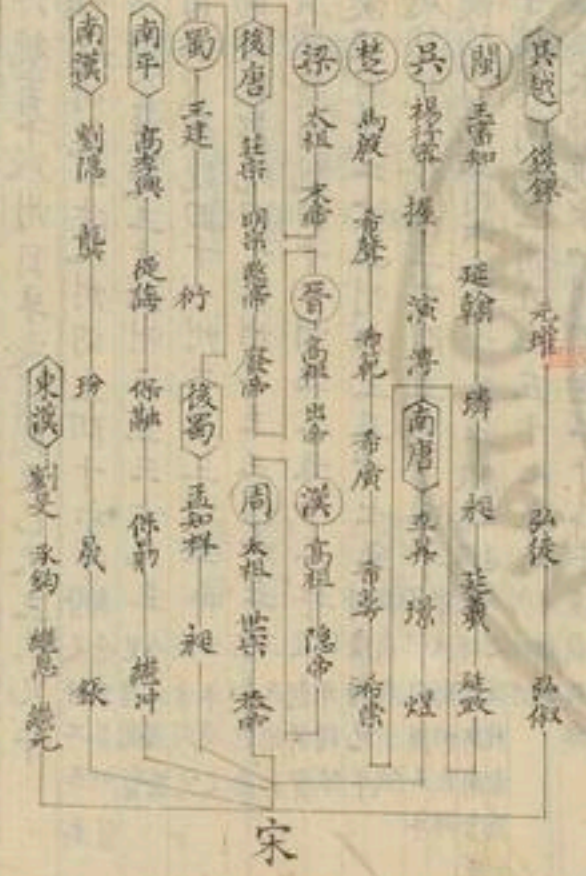 吳越 錢鏐 元瓘 弘佐 弘俶
閩 王審知 延翰 璘 昶 延羲 延政
吳 楊行密 渥 演 溥
南唐 李昪 璟 煜
楚 馬殷 希聲 希範 希廣 希萼 希崇
梁 太祖 末帝
晉 高祖 出帝
漢 高祖 隐帝
後唐 莊宗 明宗 愍帝 廢帝
周 太祖 世宗 恭帝
蜀 王建 衍
後蜀 孟知祥 昶
南平 高季興 從誨 保融 保勗 繼冲
南漢 劉隱 龑 玢 晟 鋹
東漢 劉旻 承鈞 繼恩 繼元
宋